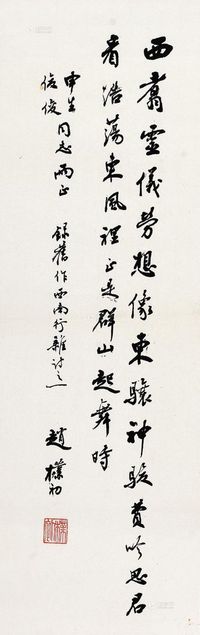 西翥靈儀勞想像東驤神駿費吟思君
看浩蕩東風裡正是群山起舞時
申生
俊俊同志兩正
錄舊作西南行雜詩之一
趙樸初